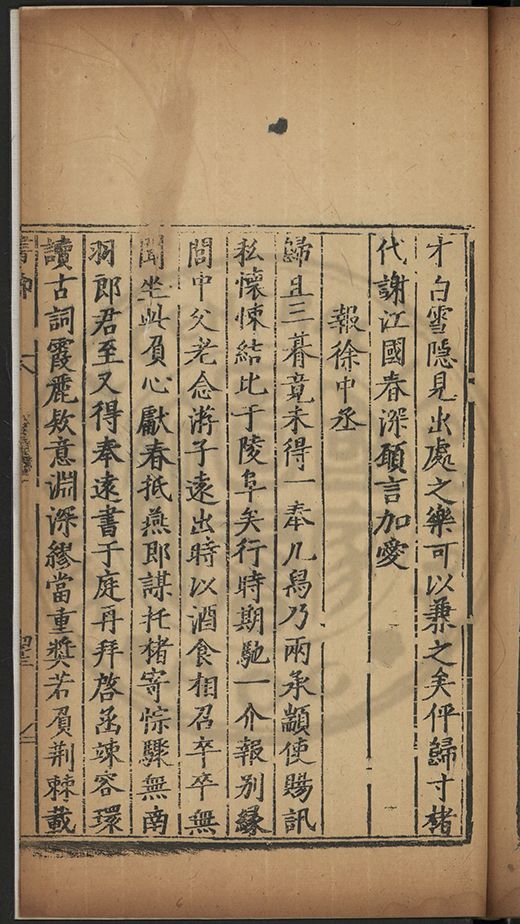 才白雪隱見出處之樂可以兼之矣伻歸寸楮
代謝江國春深願言加愛
報徐中丞
歸且三暮竟未得一奉几舄乃兩承顓使賜訊
私懷悚結比于陵阜矣行時期馳一介報别緣
閭中父老念游子遠出時以酒食相召卒卒無
聞坐此負心獻春抵燕即謀托楮寄悰驟無南
羽郎君至又得奉遠書于庭再拜啓函竦容環
讀古詞霞麗欵意淵深繆當重奬若負荆棘載